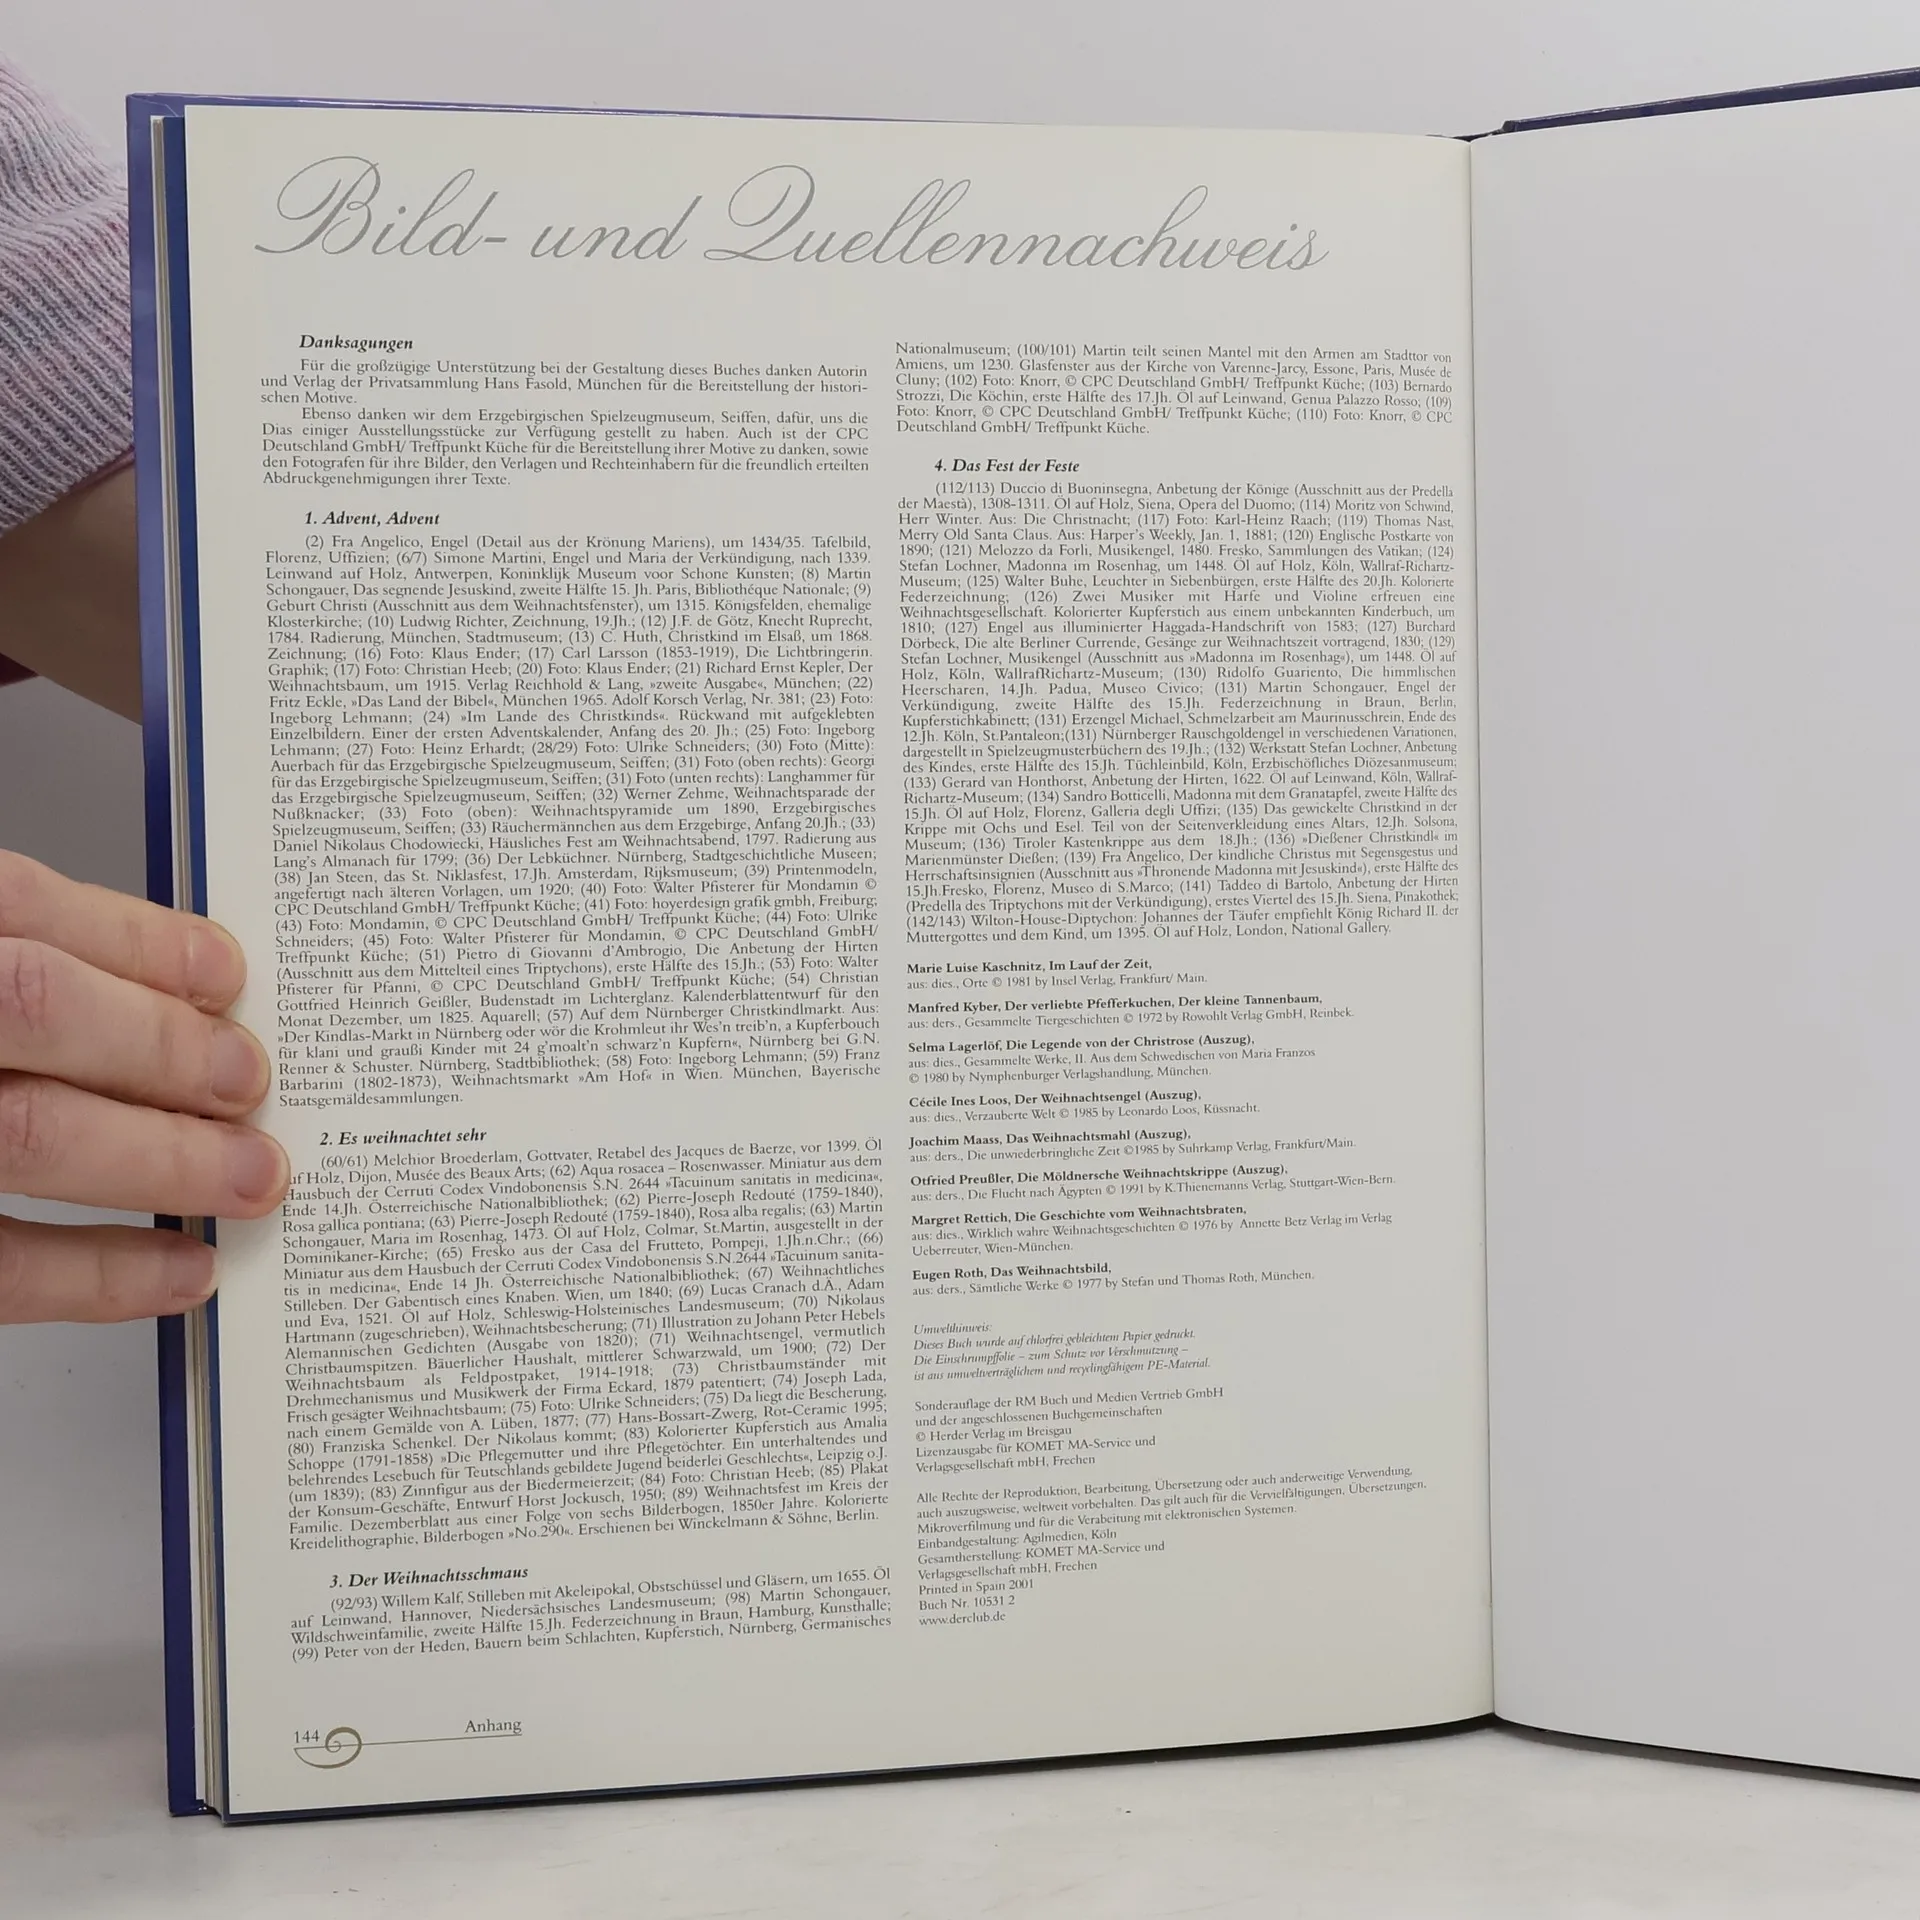 Bild- und Quellennachweis
Danksagungen
Für die großzügige Unterstützung bei der Gestaltung dieses Buches danken Autorin
und Verlag der Privatsammlung Hans Fasold, München für die Bereitstellung der histori-
schen Motive.
Ebenso danken wir dem Erzgebirgischen Spielzeugmuseum, Seiffen, dafür, uns die
Dias einiger Ausstellungsstücke zur Verfügung gestellt zu haben. Auch ist der CPC
Deutschland GmbH/ Treffpunkt Küche für die Bereitstellung ihrer Motive zu danken, sowie
den Fotografen für ihre Bilder, den Verlagen und Rechteinhabern für die freundlich erteilten
Abdruckgenehmigungen ihrer Texte.
1. Advent, Advent
(2) Fra Angelico, Engel (Detail aus der Krönung Mariens), um 1434/35. Tafelbild,
Florenz, Uffizien; (6/7) Simone Martini, Engel und Maria der Verkündigung, nach 1339.
Leinwand auf Holz, Antwerpen, Koninklijk Museum voor Schone Kunsten; (8) Martin
Schongauer, Das segnende Jesuskind, zweite Hälfte 15. Jh. Paris, Bibliothéque Nationale; (9)
Geburt Christi (Ausschnitt aus dem Weihnachtsfenster), um 1315. Königsfelden, ehemalige
Klosterkirche; (10) Ludwig Richter, Zeichnung, 19.Jh.; (12) J.F. de Götz, Knecht Ruprecht,
1784. Radierung, München, Stadtmuseum; (13) C. Huth, Christkind im Elsaß, um 1868.
Zeichnung; (16) Foto: Klaus Ender; (17) Carl Larsson (1853-1919), Die Lichtbringerin.
Graphik; (17) Foto: Christian Heeb; (20) Foto: Klaus Ender; (21) Richard Ernst Kepler, Der
Weihnachtsbaum, um 1915. Verlag Reichhold & Lang, »zweite Ausgabe«, München; (22)
Fritz Eckle, »Das Land der Bibel«, München 1965. Adolf Korsch Verlag, Nr. 381; (23) Foto:
Ingeborg Lehmann; (24) »Im Lande des Christkinds«. Rückwand mit aufgeklebten
Einzelbildern. Einer der ersten Adventskalender, Anfang des 20. Jh.; (25) Foto: Ingeborg
Lehmann; (27) Foto: Heinz Erhardt; (28/29) Foto: Ulrike Schneiders; (30) Foto (Mitte):
Auerbach für das Erzgebirgische Spielzeugmuseum, Seiffen; (31) Foto (oben rechts): Georgi
für das Erzgebirgische Spielzeugmuseum, Seiffen; (31) Foto (unten rechts): Langhammer für
das Erzgebirgische Spielzeugmuseum, Seiffen; (32) Werner Zehme, Weihnachtsparade der
Nußknacker; (33) Foto (oben): Weihnachtspyramide um 1890, Erzgebirgisches
Spielzeugmuseum, Seiffen; (33) Räuchermännchen aus dem Erzgebirge, Anfang 20.Jh.; (33)
Daniel Nikolaus Chodowiecki, Häusliches Fest am Weihnachtsabend, 1797. Radierung aus
Lang's Almanach für 1799; (36) Der Lebküchner. Nürnberg, Stadtgeschichtliche Museen;
(38) Jan Steen, das St. Niklasfest, 17.Jh. Amsterdam, Rijksmuseum; (39) Printenmodeln,
angefertigt nach älteren Vorlagen, um 1920; (40) Foto: Walter Pfisterer für Mondamin ©
CPC Deutschland GmbH/ Treffpunkt Küche; (41) Foto: hoyerdesign grafik gmbh, Freiburg;
(43) Foto: Mondamin, © CPC Deutschland GmbH/ Treffpunkt Küche; (44) Foto: Ulrike
Schneiders; (45) Foto: Walter Pfisterer für Mondamin, © CPC Deutschland GmbH/
Treffpunkt Küche; (51) Pietro di Giovanni d'Ambrogio, Die Anbetung der Hirten
(Ausschnitt aus dem Mittelteil eines Triptychons), erste Hälfte des 15.Jh.; (53) Foto: Walter
Pfisterer für Pfanni, © CPC Deutschland GmbH/ Treffpunkt Küche; (54) Christian
Gottfried Heinrich Geißler, Budenstadt im Lichterglanz. Kalenderblattentwurf für den
Monat Dezember, um 1825. Aquarell; (57) Auf dem Nürnberger Christkindlmarkt. Aus:
»Der Kindlas-Markt in Nürnberg oder wör die Krohmleut ihr Wes'n treib'n, a Kupferbouch
für klani und graußi Kinder mit 24 g'moalt'n schwarz'n Kupfern«, Nürnberg bei G.N.
Renner & Schuster. Nürnberg, Stadtbibliothek; (58) Foto: Ingeborg Lehmann; (59) Franz
Barbarini (1802-1873), Weihnachtsmarkt »Am Hof« in Wien. München, Bayerische
Staatsgemäldesammlungen.
2. Es weihnachtet sehr
(60/61) Melchior Broederlam, Gottvater, Retabel des Jacques de Baerze, vor 1399. Öl
uf Holz, Dijon, Musée des Beaux Arts; (62) Aqua rosacea – Rosenwasser. Miniatur aus dem
Hausbuch der Cerruti Codex Vindobonensis S.N. 2644 »Tacuinum sanitatis in medicina«,
Ende 14.Jh. Österreichische Nationalbibliothek; (62) Pierre-Joseph Redouté (1759-1840),
Rosa gallica pontiana; (63) Pierre-Joseph Redouté (1759-1840), Rosa alba regalis; (63) Martin
Schongauer, Maria im Rosenhag, 1473. Öl auf Holz, Colmar, St.Martin, ausgestellt in der
Dominikaner-Kirche; (65) Fresko aus der Casa del Frutteto, Pompeji, 1.Jh.n.Chr.; (66)
Miniatur aus dem Hausbuch der Cerruti Codex Vindobonensis S.N.2644 »Tacuinum sanita-
tis in medicina«, Ende 14 Jh. Österreichische Nationalbibliothek; (67) Weihnachtliches
Stilleben. Der Gabentisch eines Knaben. Wien, um 1840; (69) Lucas Cranach d.Ä., Adam
und Eva, 1521. Öl auf Holz, Schleswig-Holsteinisches Landesmuseum; (70) Nikolaus
Hartmann (zugeschrieben), Weihnachtsbescherung; (71) Illustration zu Johann Peter Hebels
Alemannischen Gedichten (Ausgabe von 1820); (71) Weihnachtsengel, vermutlich
Christbaumspitzen. Bäuerlicher Haushalt, mittlerer Schwarzwald, um 1900; (72) Der
Weihnachtsbaum als Feldpostpaket, 1914-1918; (73) Christbaumständer mit
Drehmechanismus und Musikwerk der Firma Eckard, 1879 patentiert; (74) Joseph Lada,
Frisch gesägter Weihnachtsbaum; (75) Foto: Ulrike Schneiders; (75) Da liegt die Bescherung,
nach einem Gemälde von A. Lüben, 1877; (77) Hans-Bossart-Zwerg, Rot-Ceramic 1995;
(80) Franziska Schenkel. Der Nikolaus kommt; (83) Kolorierter Kupferstich aus Amalia
Schoppe (1791-1858) »Die Pflegemutter und ihre Pflegetöchter. Ein unterhaltendes und
belehrendes Lesebuch für Teutschlands gebildete Jugend beiderlei Geschlechts«, Leipzig o.J.
(um 1839); (83) Zinnfigur aus der Biedermeierzeit; (84) Foto: Christian Heeb; (85) Plakat
der Konsum-Geschäfte, Entwurf Horst Jockusch, 1950; (89) Weihnachtsfest im Kreis der
Familie. Dezemberblatt aus einer Folge von sechs Bilderbogen, 1850er Jahre. Kolorierte
Kreidelithographie, Bilderbogen »No.290«. Erschienen bei Winckelmann & Söhne, Berlin.
3. Der Weihnachtsschmaus
(92/93) Willem Kalf, Stilleben mit Akeleipokal, Obstschüssel und Gläsern, um 1655. Öl
auf Leinwand, Hannover, Niedersächsisches Landesmuseum; (98) Martin Schongauer,
Wildschweinfamilie, zweite Hälfte 15.Jh. Federzeichnung in Braun, Hamburg, Kunsthalle;
(99) Peter von der Heden, Bauern beim Schlachten, Kupferstich, Nürnberg, Germanisches
Nationalmuseum; (100/101) Martin teilt seinen Mantel mit den Armen am Stadttor von
Amiens, um 1230. Glasfenster aus der Kirche von Varenne-Jarcy, Essone, Paris, Musée de
Cluny; (102) Foto: Knorr, © CPC Deutschland GmbH/ Treffpunkt Küche; (103) Bernardo
Strozzi, Die Köchin, erste Hälfte des 17.Jh. Öl auf Leinwand, Genua Palazzo Rosso; (109)
Foto: Knorr, © CPC Deutschland GmbH/ Treffpunkt Küche; (110) Foto: Knorr, © CPC
Deutschland GmbH/ Treffpunkt Küche.
4. Das Fest der Feste
(112/113) Duccio di Buoninsegna, Anbetung der Könige (Ausschnitt aus der Predella
der Maestà), 1308-1311. Öl auf Holz, Siena, Opera del Duomo; (114) Moritz von Schwind,
Herr Winter. Aus: Die Christnacht; (117) Foto: Karl-Heinz Raach; (119) Thomas Nast,
Merry Old Santa Claus. Aus: Harper's Weekly, Jan. 1, 1881; (120) Englische Postkarte von
1890; (121) Melozzo da Forli, Musikengel, 1480. Fresko, Sammlungen des Vatikan; (124)
Stefan Lochner, Madonna im Rosenhag, um 1448. Öl auf Holz, Köln, Wallraf-Richartz-
Museum; (125) Walter Buhe, Leuchter in Siebenbürgen, erste Hälfte des 20.Jh. Kolorierte
Federzeichnung; (126) Zwei Musiker mit Harfe und Violine erfreuen eine
Weihnachtsgesellschaft. Kolorierter Kupferstich aus einem unbekannten Kinderbuch, um
1810; (127) Engel aus illuminierter Haggada-Handschrift von 1583; (127) Burchard
Dörbeck, Die alte Berliner Currende, Gesänge zur Weihnachtszeit vortragend, 1830; (129)
Stefan Lochner, Musikengel (Ausschnitt aus »Madonna im Rosenhag«), um 1448. Öl auf
Holz, Köln, WallrafRichartz-Museum; (130) Ridolfo Guariento, Die himmlischen
Heerscharen, 14.Jh. Padua, Museo Civico; (131) Martin Schongauer, Engel der
Verkündigung, zweite Hälfte des 15.Jh. Federzeichnung in Braun, Berlin,
Kupferstichkabinett; (131) Erzengel Michael, Schmelzarbeit am Maurinusschrein, Ende des
12.Jh. Köln, St.Pantaleon;(131) Nürnberger Rauschgoldengel in verschiedenen Variationen,
dargestellt in Spielzeugmusterbüchern des 19.Jh.; (132) Werkstatt Stefan Lochner, Anbetung
des Kindes, erste Hälfte des 15.Jh. Tüchleinbild, Köln, Erzbischöfliches Diözesanmuseum;
(133) Gerard van Honthorst, Anbetung der Hirten, 1622. Öl auf Leinwand, Köln, Wallraf-
Richartz-Museum; (134) Sandro Botticelli, Madonna mit dem Granatapfel, zweite Hälfte des
15.Jh. Öl auf Holz, Florenz, Galleria degli Uffizi; (135) Das gewickelte Christkind in der
Krippe mit Ochs und Esel. Teil von der Seitenverkleidung eines Altars, 12.Jh. Solsona,
Museum; (136) Tiroler Kastenkrippe aus dem 18.Jh.; (136) »Dießener Christkindl« im
Marienmünster Dießen; (139) Fra Angelico, Der kindliche Christus mit Segensgestus und
Herrschaftsinsignien (Ausschnitt aus »Thronende Madonna mit Jesuskind«), erste Hälfte des
15.Jh.Fresko, Florenz, Museo di S.Marco; (141) Taddeo di Bartolo, Anbetung der Hirten
(Predella des Triptychons mit der Verkündigung), erstes Viertel des 15.Jh. Siena, Pinakothek;
(142/143) Wilton-House-Diptychon: Johannes der Täufer empfiehlt König Richard II. der
Muttergottes und dem Kind, um 1395. Öl auf Holz, London, National Gallery.
Marie Luise Kaschnitz, Im Lauf der Zeit,
aus: dies., Orte © 1981 by Insel Verlag, Frankfurt/ Main.
Manfred Kyber, Der verliebte Pfefferkuchen, Der kleine Tannenbaum,
aus: ders., Gesammelte Tiergeschichten © 1972 by Rowohlt Verlag GmbH, Reinbek.
Selma Lagerlöf, Die Legende von der Christrose (Auszug),
aus: dies., Gesammelte Werke, II. Aus dem Schwedischen von Maria Franzos
© 1980 by Nymphenburger Verlagshandlung, München.
Cécile Ines Loos, Der Weihnachtsengel (Auszug),
aus: dies., Verzauberte Welt © 1985 by Leonardo Loos, Küssnacht.
Joachim Maass, Das Weihnachtsmahl (Auszug),
aus: ders., Die unwiederbringliche Zeit ©1985 by Suhrkamp Verlag, Frankfurt/Main.
Otfried Preußler, Die Möldnersche Weihnachtskrippe (Auszug),
aus: ders., Die Flucht nach Ägypten © 1991 by K.Thienemanns Verlag, Stuttgart-Wien-Bern.
Margret Rettich, Die Geschichte vom Weihnachtsbraten,
aus: dies., Wirklich wahre Weihnachtsgeschichten © 1976 by Annette Betz Verlag im Verlag
Ueberreuter, Wien-München.
Eugen Roth, Das Weihnachtsbild,
aus: ders., Sämtliche Werke © 1977 by Stefan und Thomas Roth, München.
Umwelthinweis:
Dieses Buch wurde auf chlorfrei gebleichtem Papier gedruckt.
Die Einschrumpffolie – zum Schutz vor Verschmutzung –
ist aus umweltverträglichem und recyclingfähigem PE-Material.
Sonderauflage der RM Buch und Medien Vertrieb GmbH
und der angeschlossenen Buchgemeinschaften
© Herder Verlag im Breisgau
Lizenzausgabe für KOMET MA-Service und
Verlagsgesellschaft mbH, Frechen
Alle Rechte der Reproduktion, Bearbeitung, Übersetzung oder auch anderweitige Verwendung,
auch auszugsweise, weltweit vorbehalten. Das gilt auch für die Vervielfältigungen, Übersetzungen,
Mikroverfilmung und für die Verabeitung mit elektronischen Systemen.
Einbandgestaltung: Agilmedien, Köln
Gesamtherstellung: KOMET MA-Service und
Verlagsgesellschaft mbH, Frechen
Printed in Spain 2001
Buch Nr. 10531 2
www.derclub.de
144
Anhang